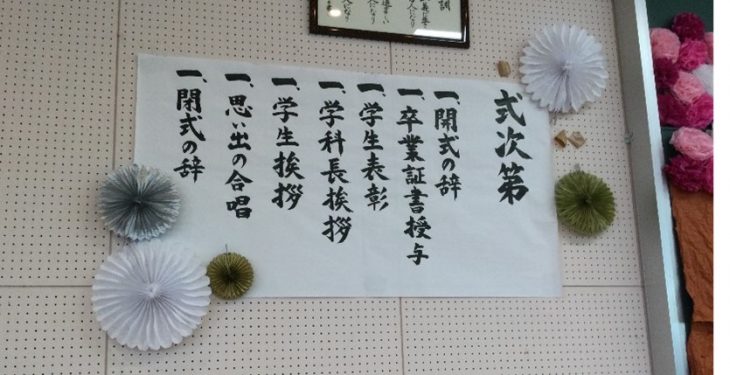 式次第
一、開式の辞
一、卒業証書授与
一、学生表彰
一、学科長挨拶
一、学生挨拶
一、思い出の合唱
一、閉式の辞
訓